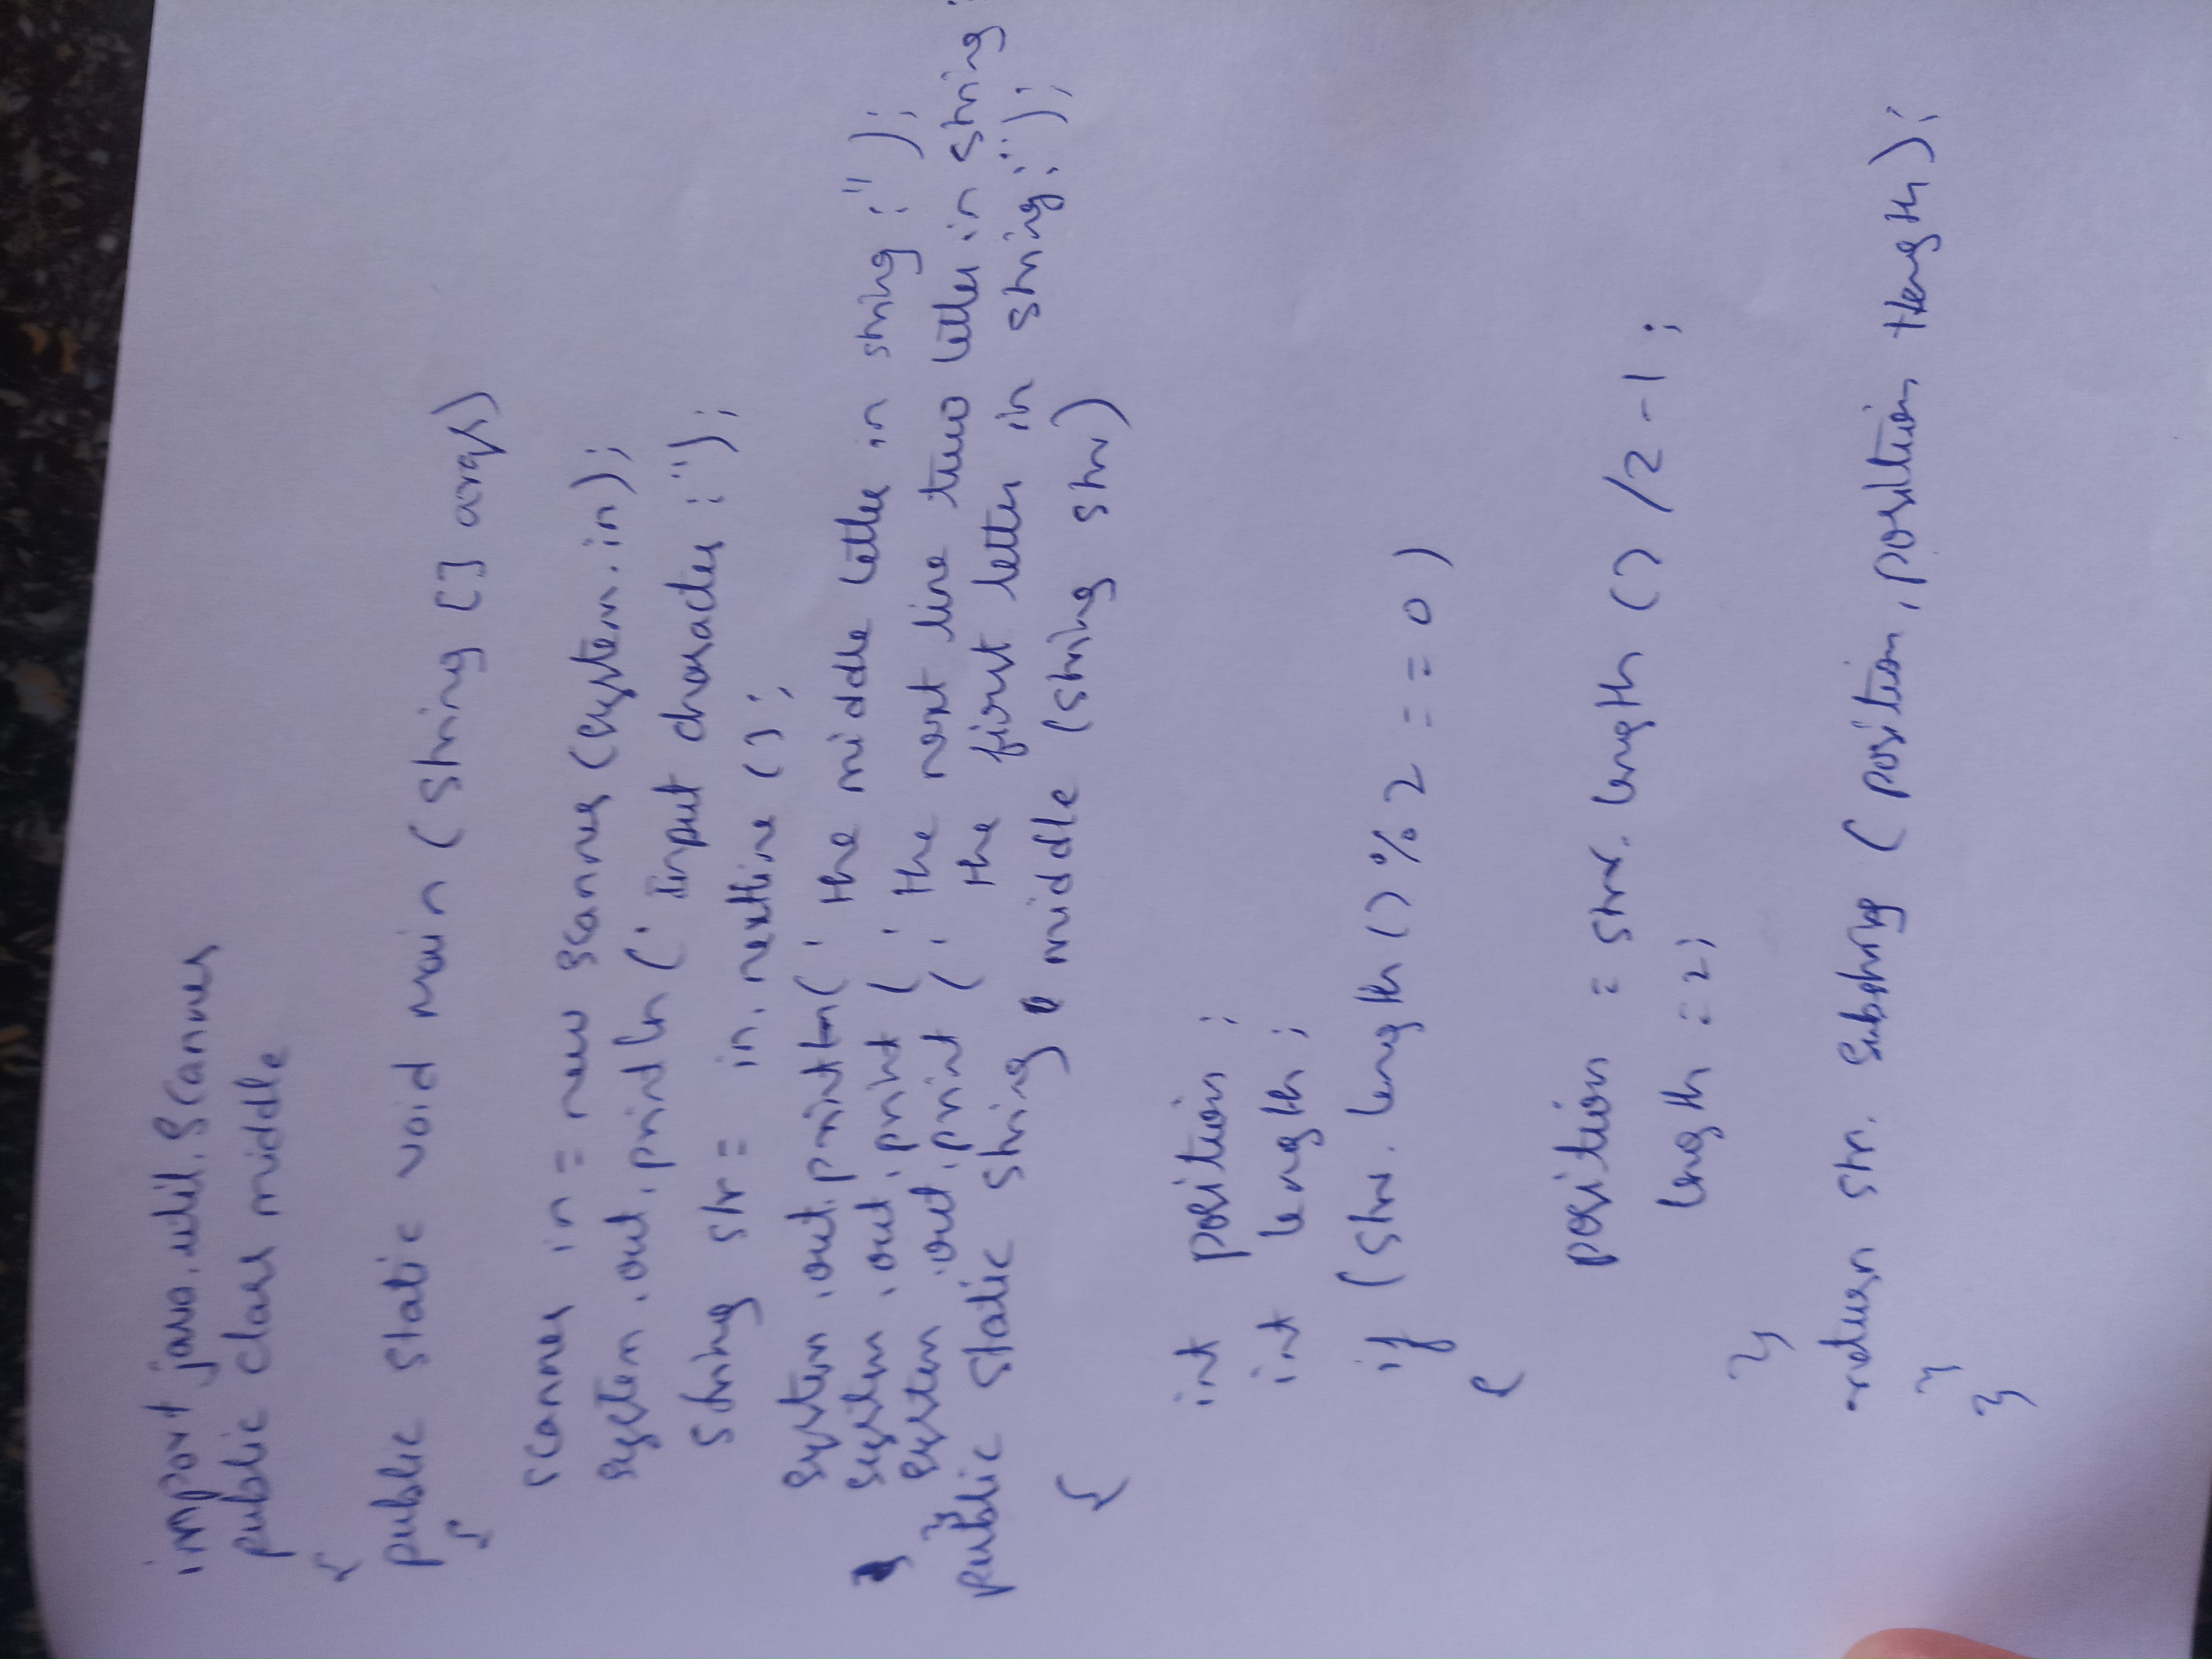 import java.util.Scanner
public class middle
{
public static void main (string [] args)
{
scanner in = new scanner (system.in);
system.out.println (' Input character :");
string str = in.nextline ();
system.out.println (' the middle letter in string :" );
system.out.print ( ' the next line two letter in string :
} system.out.print ( ' the first letter in string :");
public static string middle (string str)
{
int position ;
int length ;
if (str.length () % 2 = = 0 )
{
position = str.length () /2 -1 ;
length = 2;
}
return str. substring ( position , position +length ) ;
}
}